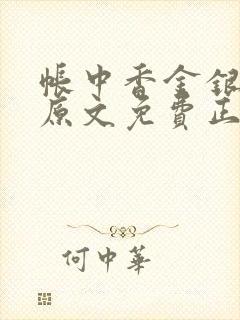 帳中香金銀
原文免費正
何中華